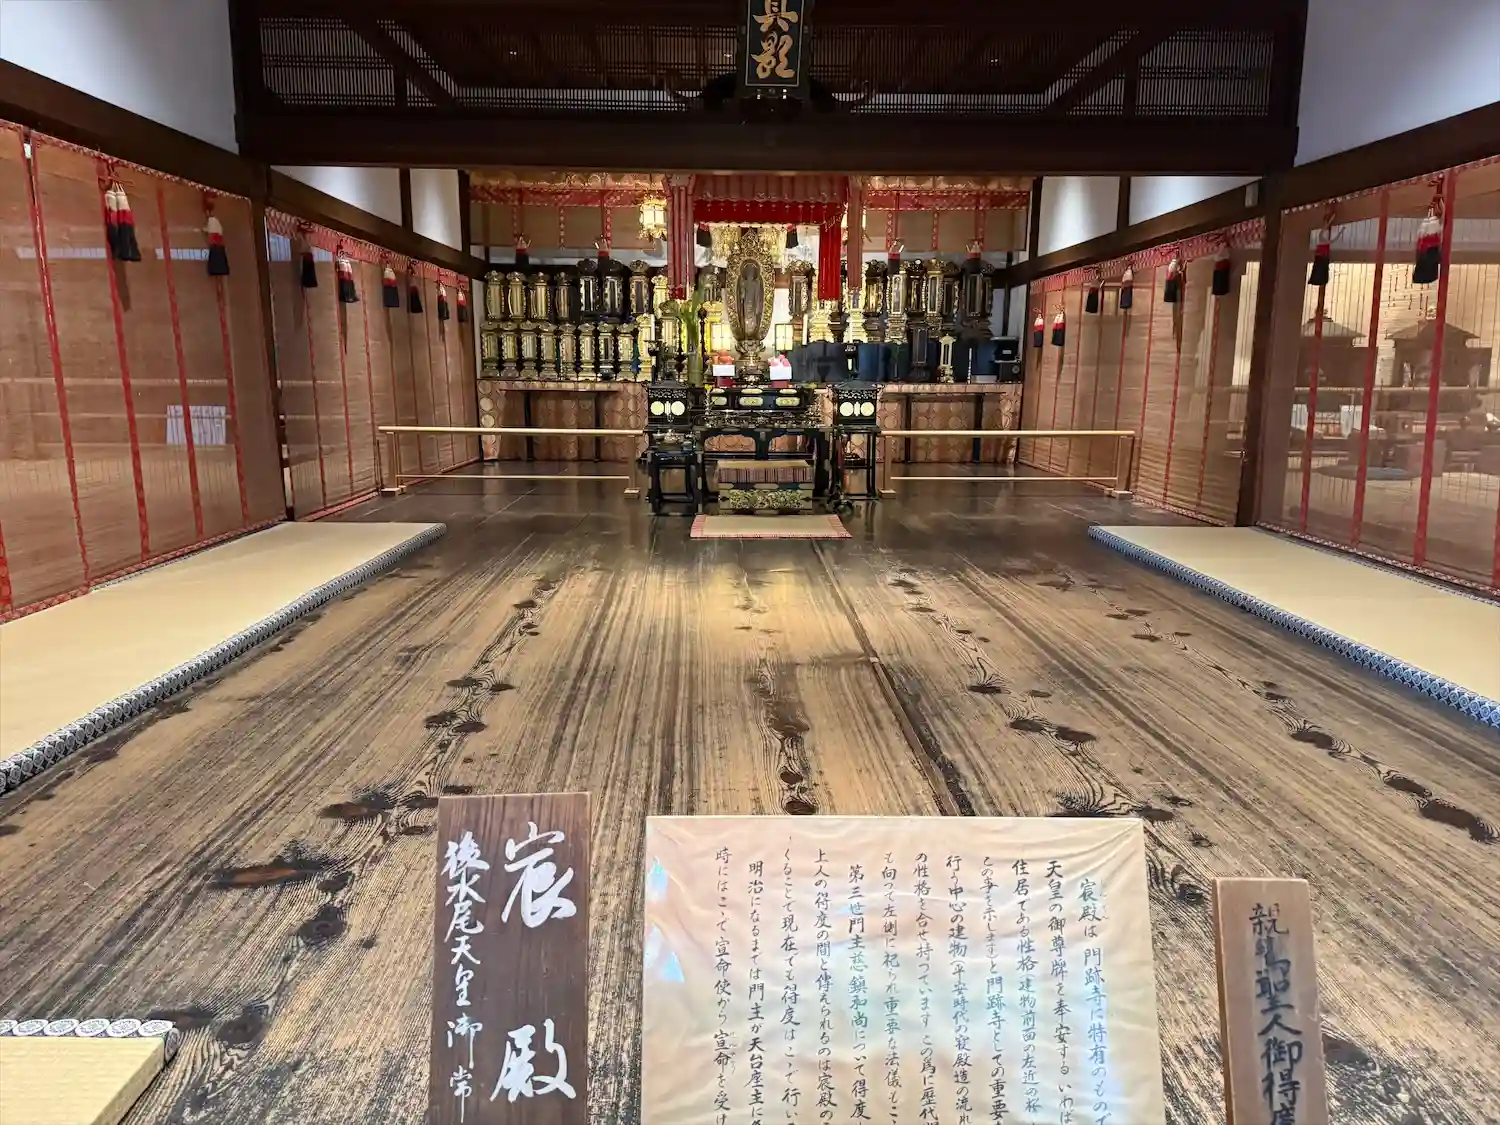 真影
宸殿
後水尾天皇御常
しんでん
宸殿は門跡寺に特有のもので
天皇の御尊牌を奉安するいわば
住居である性格(建物前面の左近の桜
この事を示します)と門跡寺としての重要
行う中心の建物(平安時代の寝殿造の流れ
の性格を合せ持っています この為に歴代
も向って左側に祀られ重要な法儀もここ
第三世門主慈鎮和尚について得度
上人の得度の間と傳えられるのは宸殿の
くることで現在でも得度はここで行い
明治になるまでは門主が天台座主に
時にはここで宣命使から宣命を受け
親鸞聖人御得度